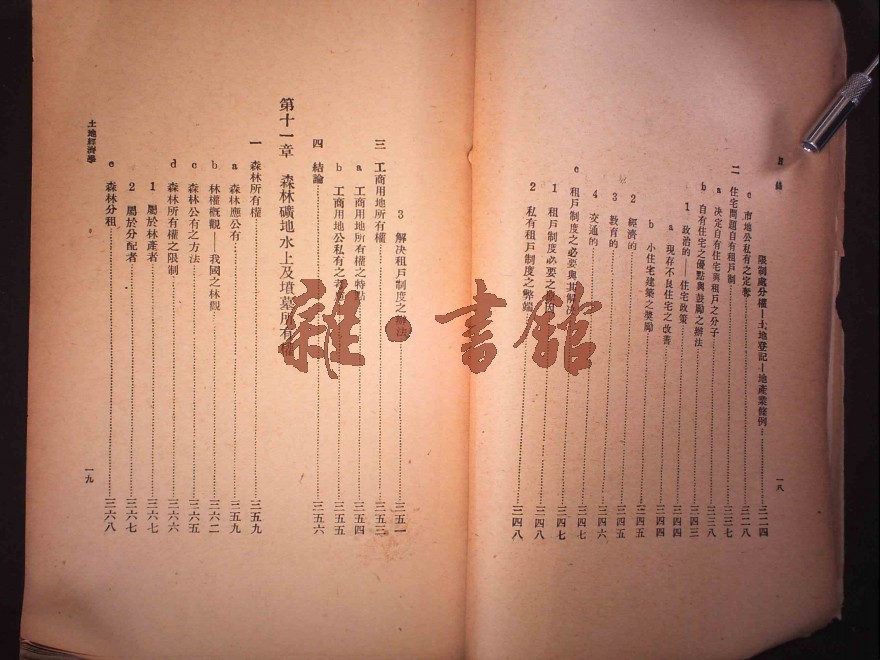 目錄
限制處分權—土地登記—地產業條例 三二四
c 市地公私有之定奪 三二八
二 住宅問題自有租戶制 三三七
a 決定自有住宅與租戶之分子 三三八
b 自有住宅之優點與鼓勵之辦法 三四三
1 政治的——住宅政策 三四四
a 現存不良住宅之改善 三四四
b 小住宅建築之獎勵 三四四
2 經濟的 三四五
3 教育的 三四五
4 交通的 三四六
c 租戶制度之必要與其解決 三四七
1 租戶制度必要之 三四七
2 私有租戶制度之弊端 三四八
一八
3 解決租戶制度之辦法 三五一
三 工商用地所有權 三五三
a 工商用地所有權之特點 三五四
b 工商用地公私有之 三五五
四 結論 三五六
第十一章 森林礦地水上及墳墓所有權
一 森林所有權 三五九
a 森林應公有 三五九
b 林權槪觀——我國之林觀 三六二
c 森林公有之方法 三六五
d 森林所有權之限制 三六六
1 屬於林產者 三六七
2 屬於分配者 三六七
e 森林分租 三六八
土地經濟學
一九
雜·書館